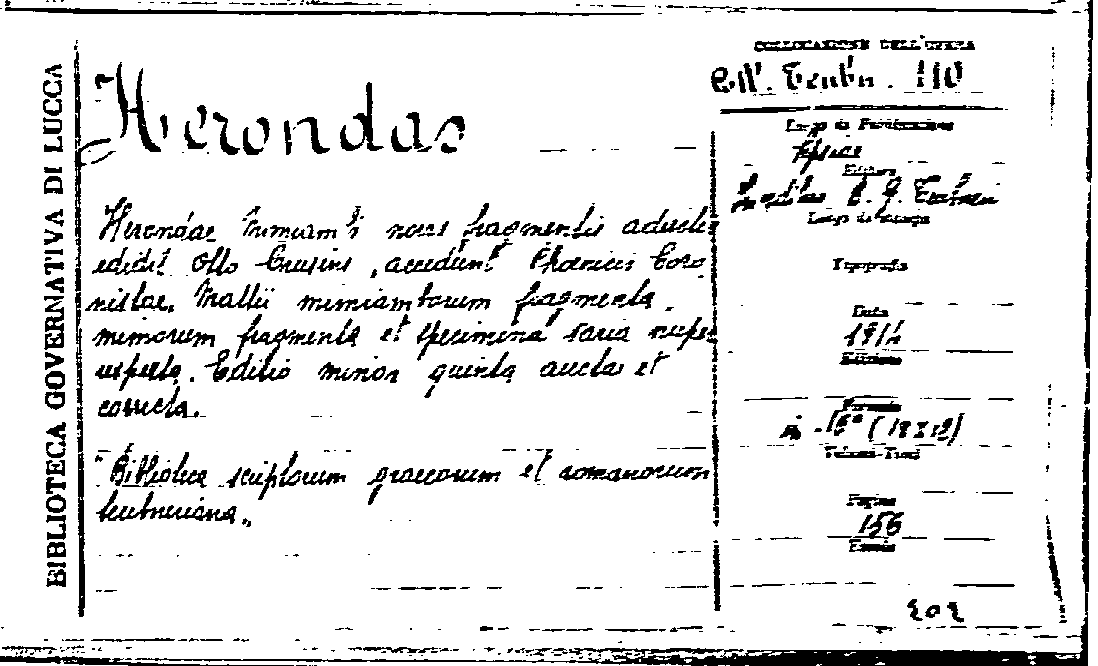 BIBLIOTECA GOVERNATIVA DI LUCCA
Herondas
Herondae Mimiambi novis fragmentis adiectis
edidit Otto Crusius, accedunt Phoenicis Coro
nistae, Mattii mimiamborum fragmenta,
mimorum fragmenta et specimina varia nuper
reperta. Editio minor quinta aucta et
correcta.
"Biblioteca scriptorum graecorum et romanorum
teubneriana„
COLLOCAZIONE DELL'OPERA
Coll. Teubn. 110
Luogo di Pubblicazione
Lipsiae
Editore
B. G. Teubneri
Luogo di stampa
Tipografia
Data
1914
Edizione
Formato
in-16° (18x12)
Volumi-Tomi
Pagine
156